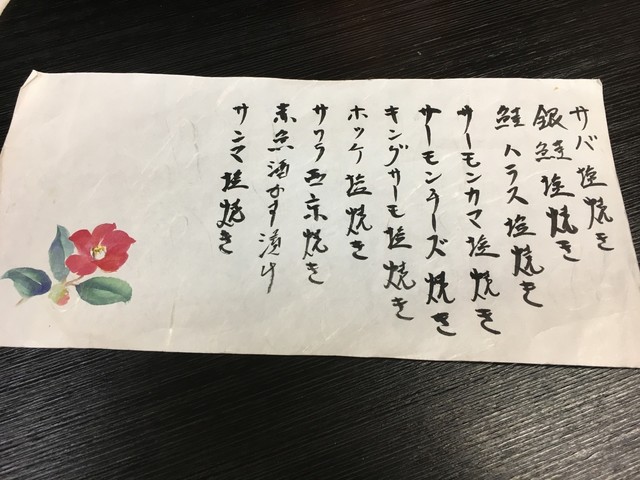 サバ塩焼き
銀鮭塩焼き
鮭ハラス塩焼き
サーモンカマ塩焼き
サーモンチーズ焼き
キングサーモ塩焼き
ホッケ塩焼き
サワラ西京焼き
赤魚酒かす漬け
サンマ塩焼き